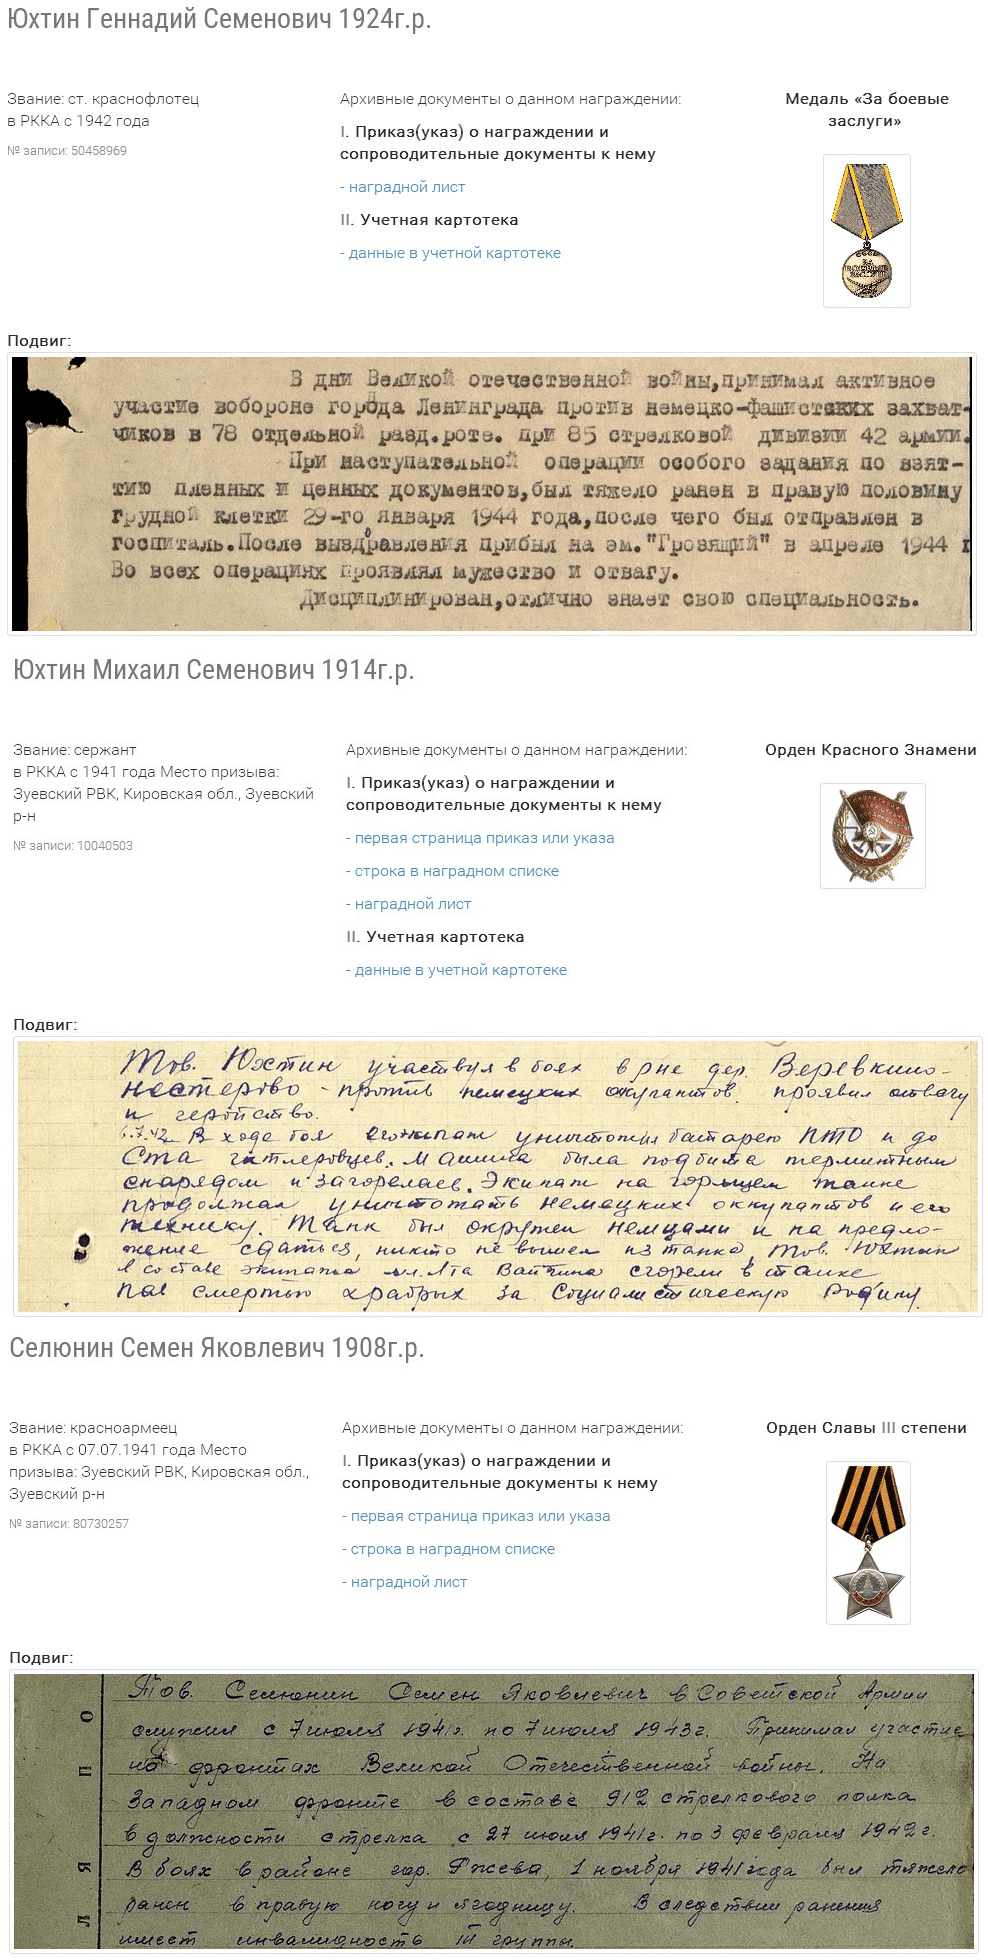 Юхтин Геннадий Семенович 1924г.р.
Звание: ст. краснофлотец
в РККА с 1942 года
№ записи: 50458969
Архивные документы о данном награждении:
I. Приказ(указ) о награждении и
сопроводительные документы к нему
- наградной лист
II. Учетная картотека
- данные в учетной картотеке
Медаль «За боевые
заслуги»
Подвиг:
В дни Великой отечественной войны,принимал активное
участие вобороне города Ленинграда против немецко-фашистских захват-
чиков в 78 отдельной разд.роте. при 85 стрелковой дивизии 42 армии.
При наступательной операции особого задания по взят-
тию пленных и ценных документов,был тяжело ранен в правую половину
грудной клетки 29-го января 1944 года,после чего был отправлен в
госпиталь.После выздравления прибыл на эм."Грозящий" в апреле 1944 г
Во всех операциях проявлял мужество и отвагу.
Дисциплинирован,отлично знает свою специальность.
Юхтин Михаил Семенович 1914г.р.
Звание: сержант
в РККА с 1941 года Место призыва:
Зуевский РВК, Кировская обл., Зуевский
р-н
№ записи: 10040503
Архивные документы о данном награждении:
I. Приказ(указ) о награждении и
сопроводительные документы к нему
- первая страница приказ или указа
- строка в наградном списке
- наградной лист
II. Учетная картотека
- данные в учетной картотеке
Орден Красного Знамени
Подвиг:
Тов. Юхтин участвуя в боях в рне дер. Веревкино-
нестерово - против немецких окупантов. проявил отвагу
и геройство.
6.7.42 В ходе боя его экипаж уничтожил батарею ПТО и до
Ста гитлеровцев. Машина была подбита термитным
снарядом и загорелась. Экипаж на горящем танке
продолжал уничтожать немецких оккупантов и его
технику. Танк был окружен немцами и на предло-
жение сдаться, никто не вышел из танка, тов. Юхтин
в составе экипажа мл. л-та сгорели в танке
пав смертью храбрых за Социалистическую Родину.
Селюнин Семен Яковлевич 1908г.р.
Звание: красноармеец
в РККА с 07.07.1941 года Место
призыва: Зуевский РВК, Кировская обл.,
Зуевский р-н
№ записи: 80730257
Архивные документы о данном награждении:
I. Приказ(указ) о награждении и
сопроводительные документы к нему
- первая страница приказ или указа
- строка в наградном списке
- наградной лист
Орден Славы III степени
Подвиг:
Тов. Селюнин Семен Яковлевич в Советской Армии
служил с 7 июля 1941г. по 7 июля 1943г. Принимал участие
на фронтах Великой Отечественной войны. На
Западном фронте в составе 912 стрелкового полка
в должности стрелка с 27 июля 1941г. по 3 февраля 1942г.
В боях в районе гор. Ржева, 1 ноября 1941 года был тяжело
ранен в правую ногу и ягодницу. В следствии ранения
имеет инвалидность III группы.
О
П
Я
Л